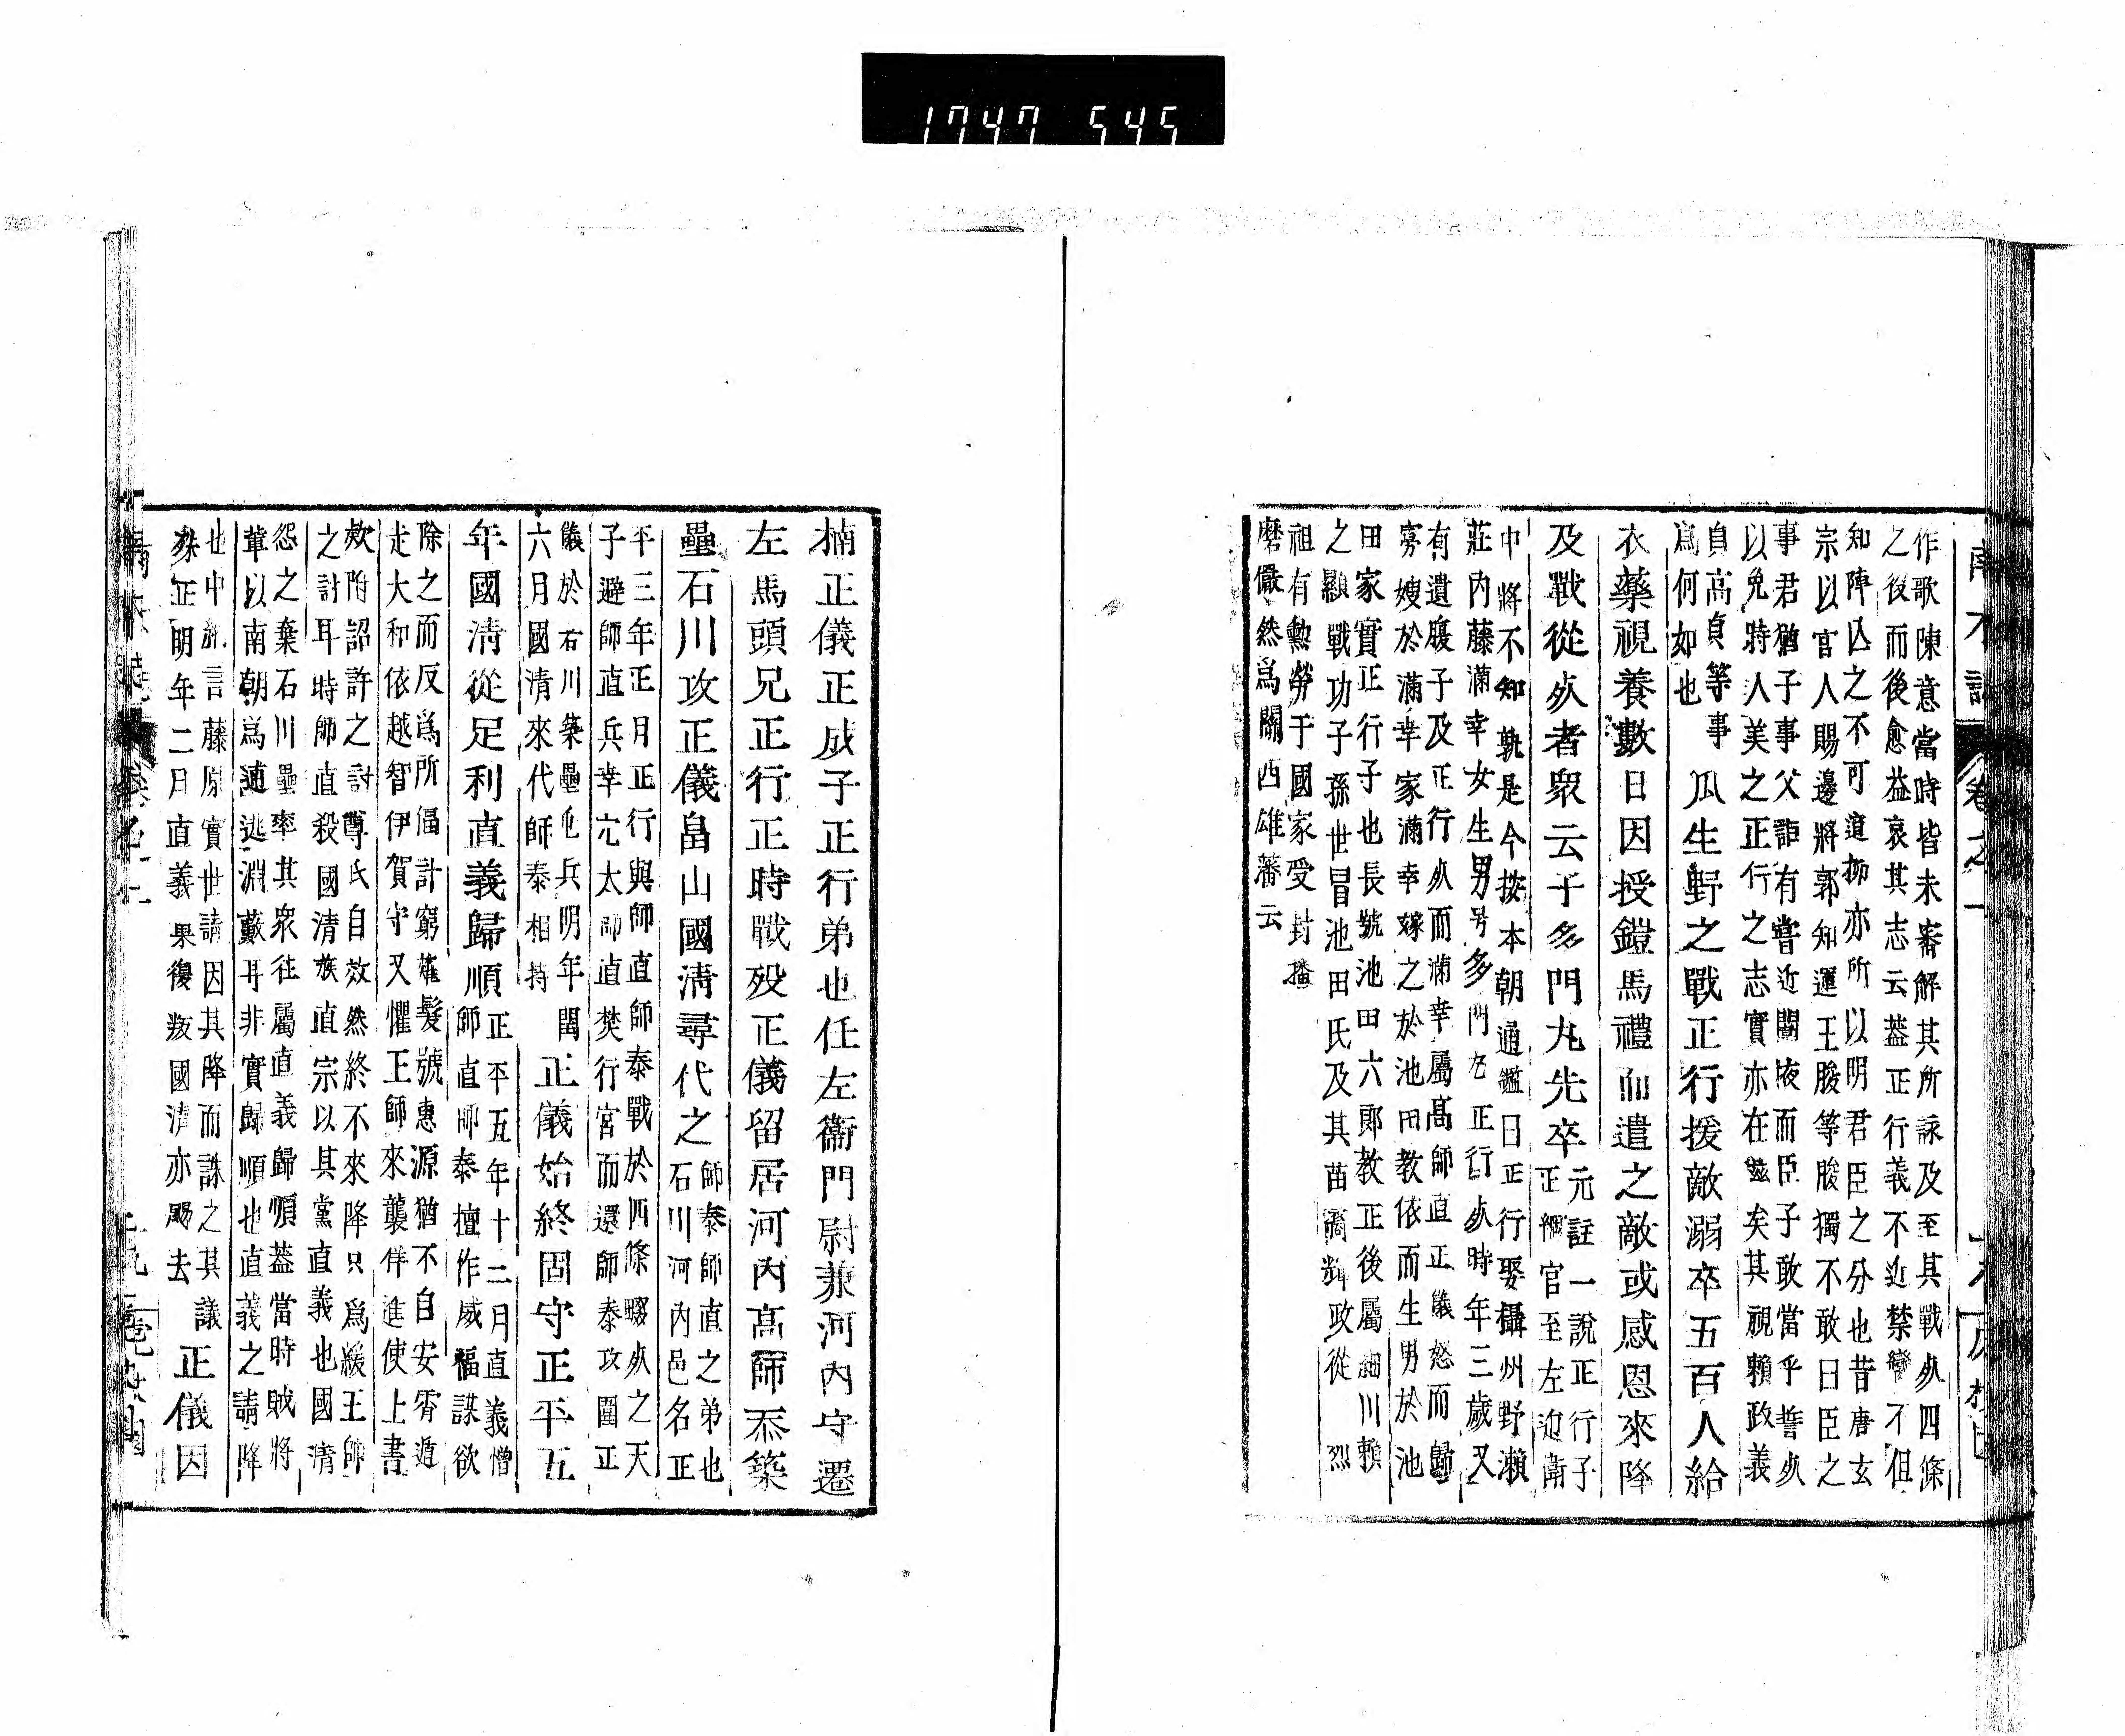 1747 545
作歌陳意當時皆未審解其所詠及至其戰死四條
之役而後愈益哀其志云蓋正行義不近禁臠不但
知陣亡之不可逭抑亦所以明君臣之分也昔唐玄
宗以官人賜邊將郭知運王晙等晙獨不敢曰臣之
事君猶子事父詎有嘗近闈掖而臣子敢當乎誓死
以免時人美之正行之志實亦在玆矣其視賴政義
貞高貞等事
爲何如也
瓜生野之戰正行援敵溺卒五百人給
衣藥視養數日因授鎧馬禮而遣之敵或感恩來降
及戰從死者衆云子多門丸先卒
元註一說正行子
正綱官至左近衞
中將不知孰是今按本朝通鑑曰正行娶攝州野瀨
莊內藤滿幸女生男号多門丸正行死時年三歲又
有遺腹子及正行死而滿幸屬高師直正儀怒而歸
寡嫂於滿幸家滿幸嫁之於池田教依而生男於池
田家實正行子也長號池田六郎教正後屬細川賴
之顯戰功子孫世冒池田氏及其苗裔輝政從烈
祖有勲勞于國家受封播
磨儼然爲關西雄藩云
楠正儀正成子正行弟也任左衞門尉兼河內守遷
左馬頭兄正行正時戰歿正儀留居河內高師泰築
壘石川攻正儀畠山國淸尋代之
師泰師直之弟也
石川河內邑名正
平三年正月正行與師直師泰戰於四條畷死之天
子避師直兵幸宂太師直焚行宮而還師泰攻圍正
儀於石川築壘屯兵明年閏
六月國淸來代師泰相持
正儀始終固守正平五
年國淸從足利直義歸順
正平五年十二月直義憎
師直師泰擅作威福謀欲
除之而反爲所偪計窮薙髮號惠源猶不自安宵遁
走大和依越智伊賀守又懼王師來襲佯進使上書
欵附詔許之討尊氏自效然終不來降只爲緩王師
之討耳時師直殺國淸族直宗以其黨直義也國淸
怨之棄石川壘率其衆往屬直義歸順蓋當時賊將
輩以南朝爲逋逃淵藪耳非實歸順也直義之請降
也中納言藤原實世請因其降而誅之其議
殊正明年二月直義果復叛國淸亦颺去
正儀因